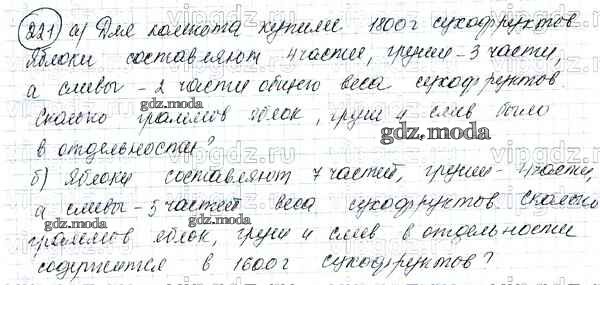 221 а) Для компота купили 1800г сухофруктов.
Яблоки составляют 4 части, груши - 3 части,
а сливы - 2 части общего веса сухофруктов.
Сколько граммов яблок, груш и слив было
в отдельности?
б) Яблоки составляют 7 частей, груши - 4 части,
а сливы - 5 частей веса сухофруктов. Сколько
граммов яблок, груш и слив в отдельности
содержится в 1600г сухофруктов?
gdz.moda
gdz.moda
gdz.moda
gdz.moda
gdz.moda